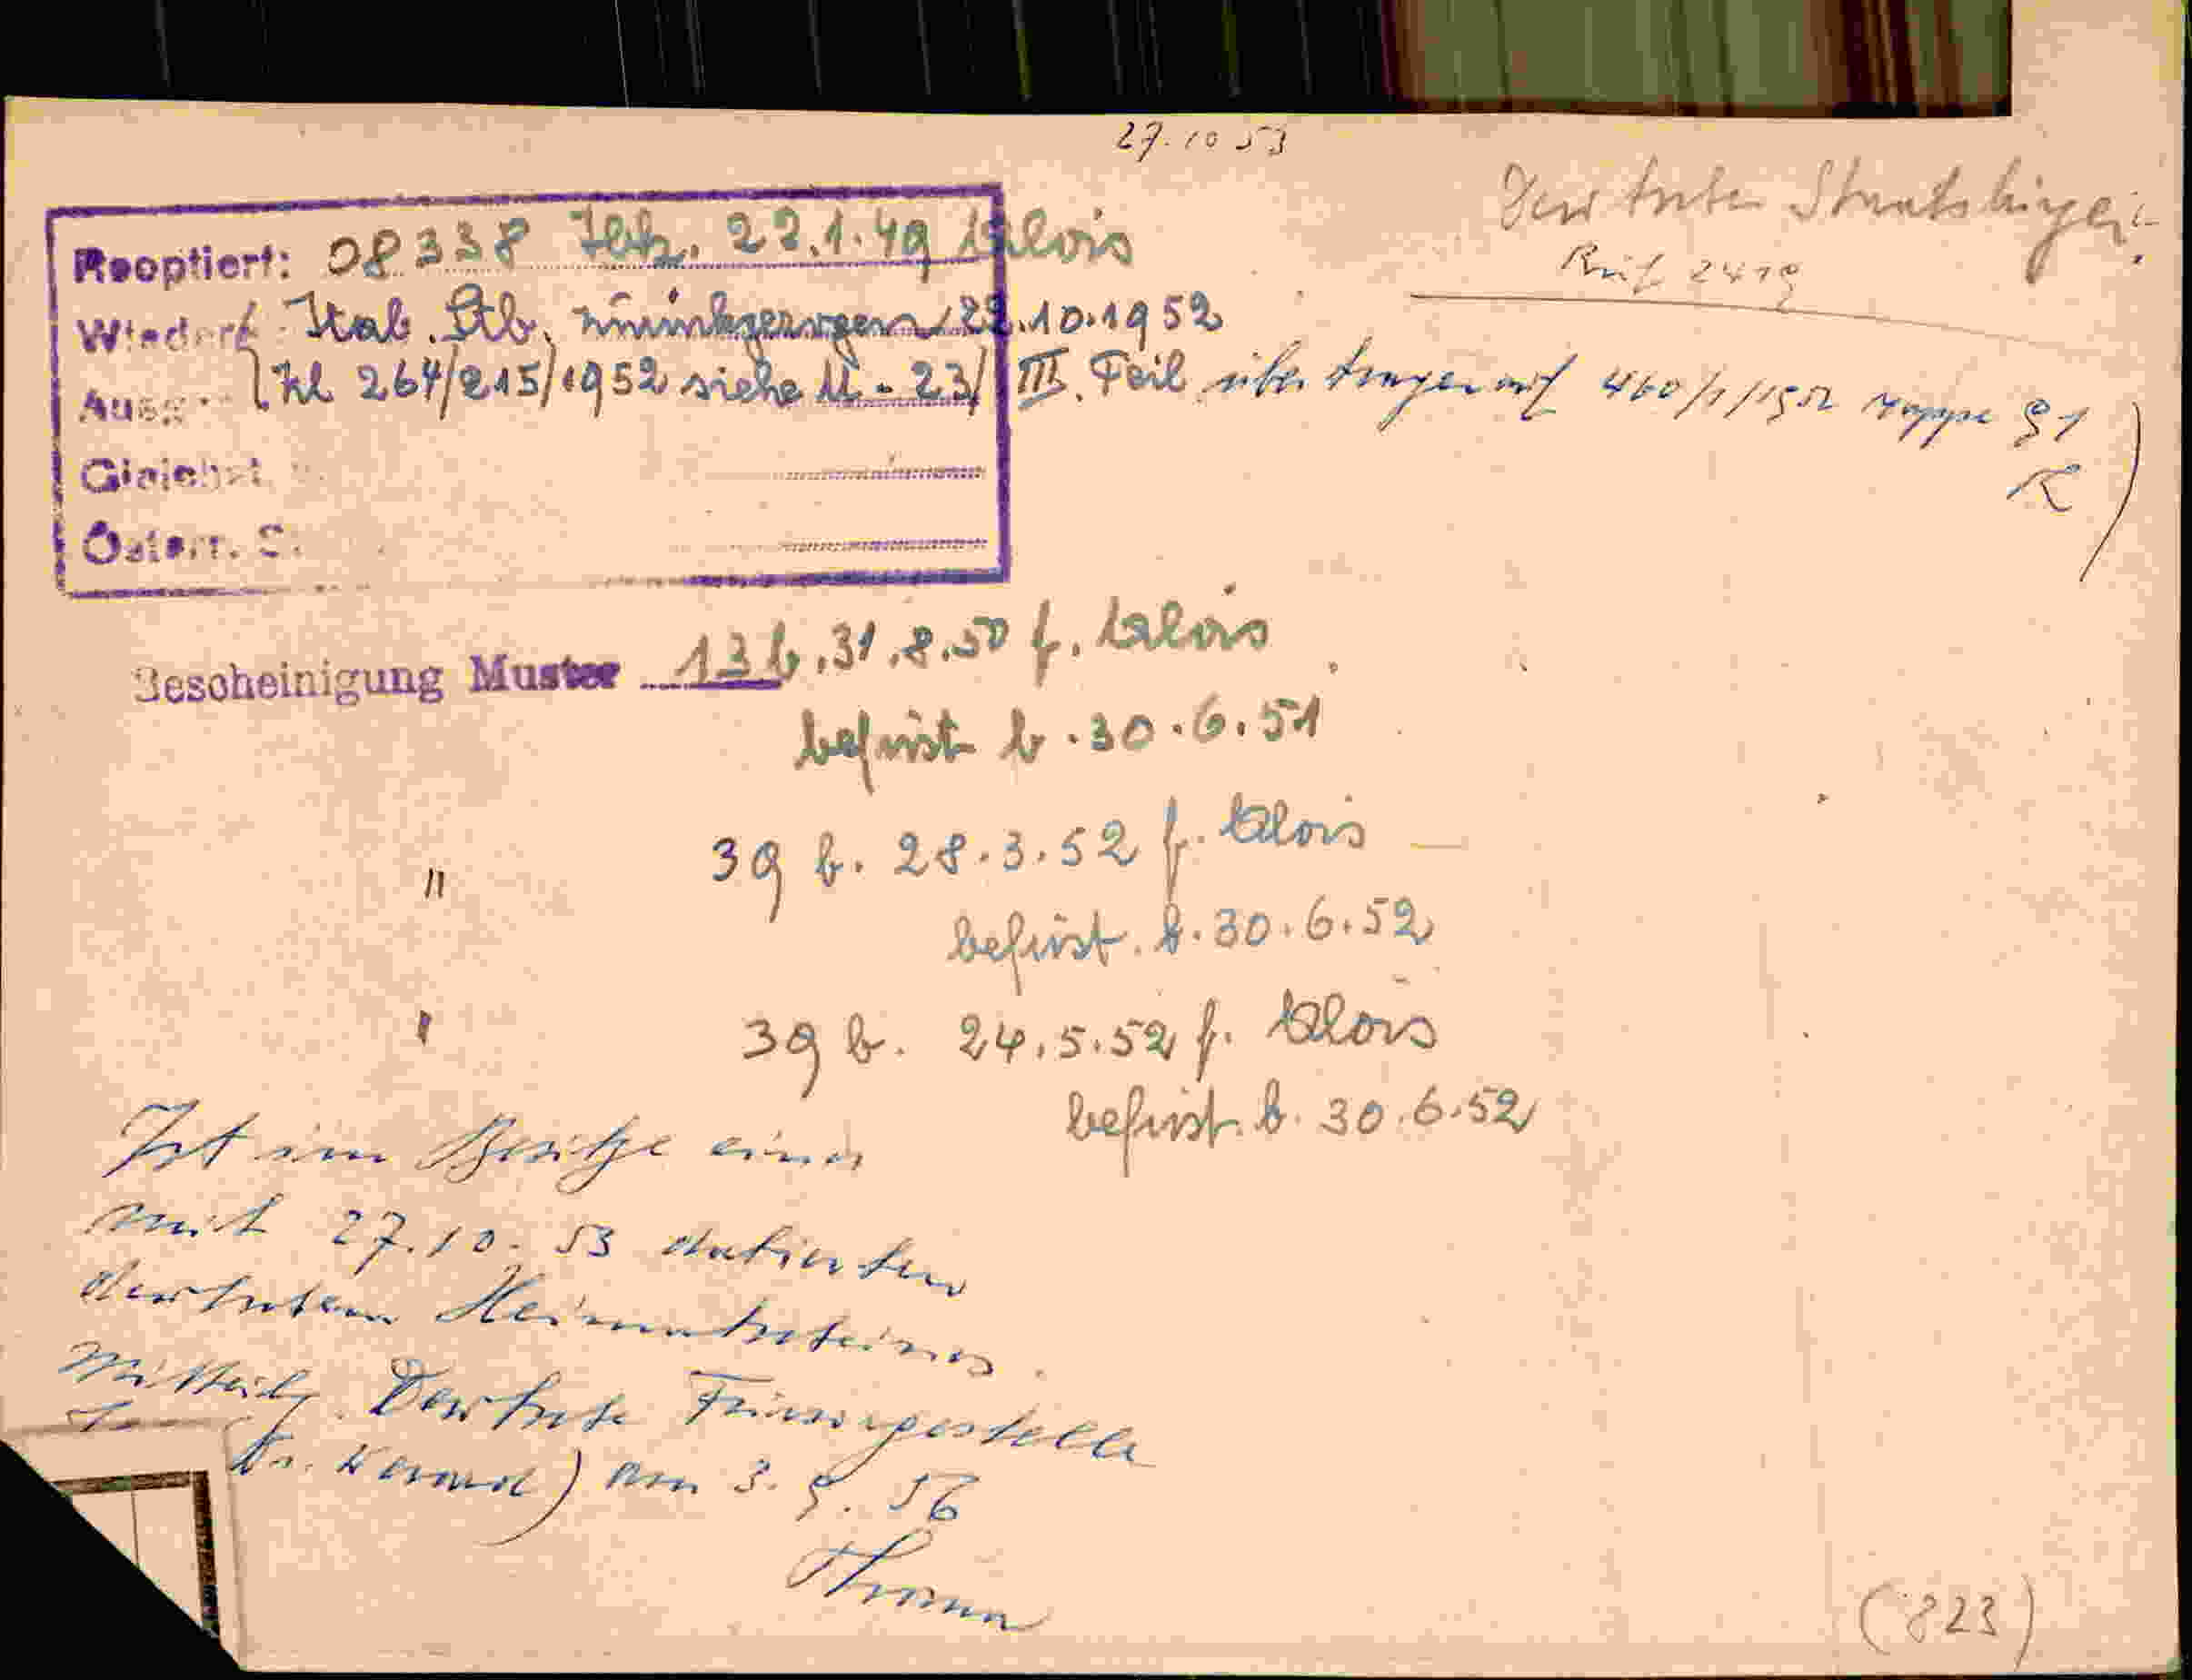 27.10 53
Deutscher Staatsbürger
Ruf 2419
Reoptiert: 08338 22.1.49 Alois
Wiedere Ital. Stb. zurückgezogen 22.10.1952
Ausg Zhl 264/215/1952 siehe U-23/III. Teil übertragen auf 460/1/1952 Mappe 91
Gleichst.
R
Österr. S.
Bescheinigung Muster 13 b. 31.8.50 f. Alois
befrist b. 30.6.51
" 39 b. 28.3.52 f. Alois
befrist. b. 30.6.52
" 39 b. 24.5.52 f. Alois
befrist. b. 30.6.52
Ist im Besitze eines
mit 27.10.53 datierten
deutschen Heimatscheines.
Mitteilg. Deutsche Fürsorgestelle
Dr. ) am 3.9.56
(823)